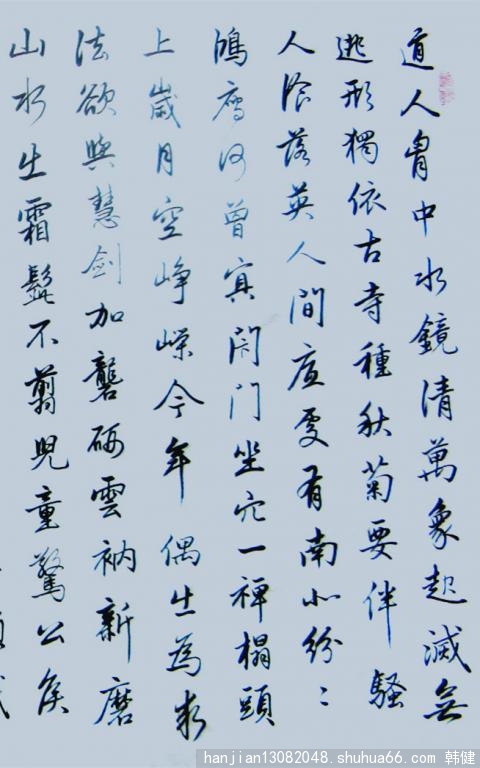 道人胷中水鏡清萬象起滅無
逃形獨依古寺種秋菊要伴騷
人飡落英人間底處有南北紛〻
鴻雁何曾冥閉門坐穴一禪榻頭
上歲月空崢嶸今年偶出為求
法欲與慧劍加礱硎雲衲新磨
山水出霜髭不翦兒童驚公侯
hanjian13082048.shuhua66.com 韩健